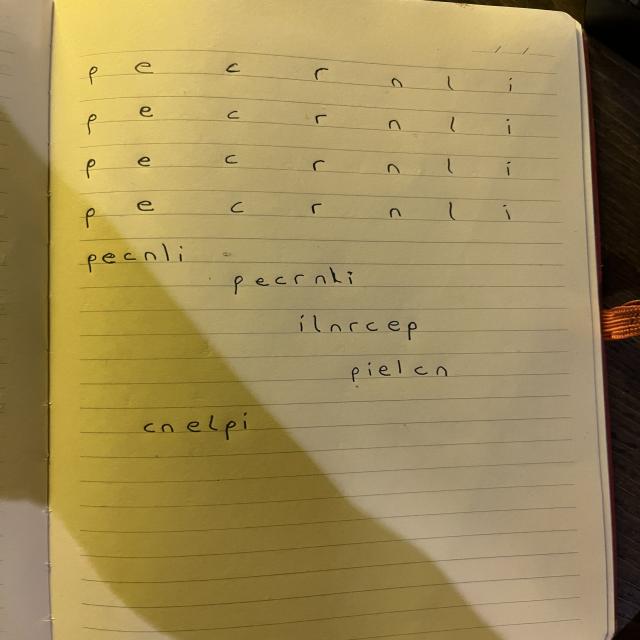 p e c r n l i
p e c r n l i
p e c r n l i
p e c r n l i
pecnli
pecrnli
ilnrcep
pielcn
cnelpi